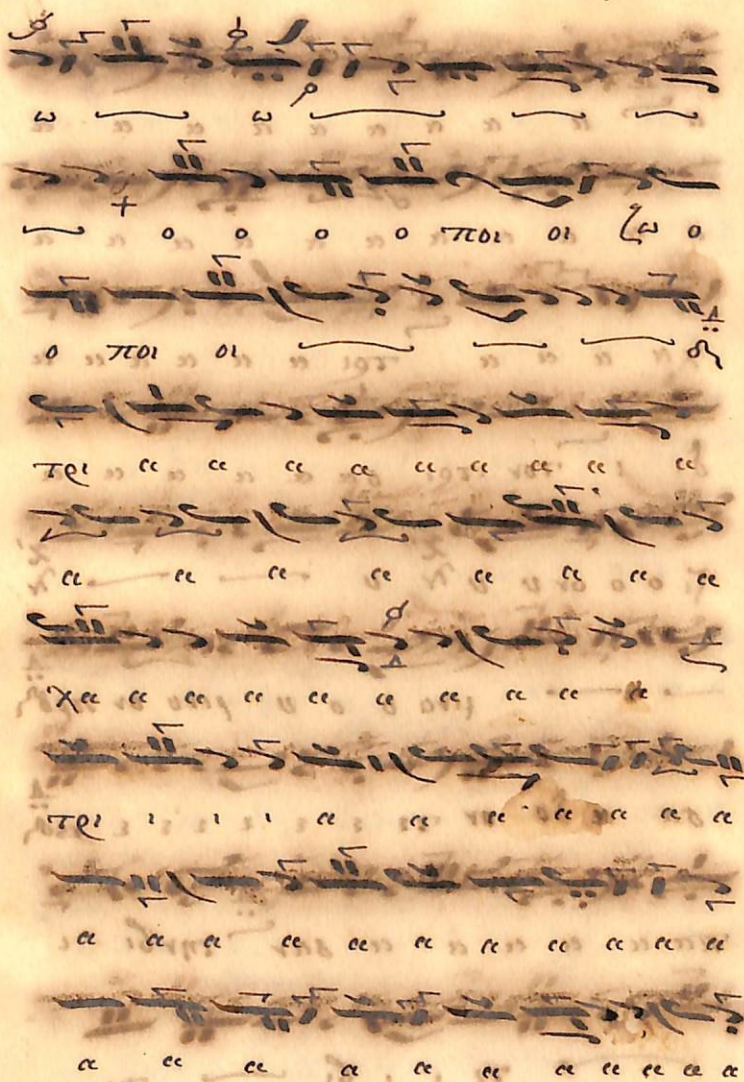 ω ω
ο ο ο ο ποι οι ζω ο
ο ποι οι
τρι α α α α α α α α α
α α α α α α α α
χα α α α α α α α α α
τρι ι ι ι α α α α α α α
α α α α α α α α α α α
α α α α α α α α α α α